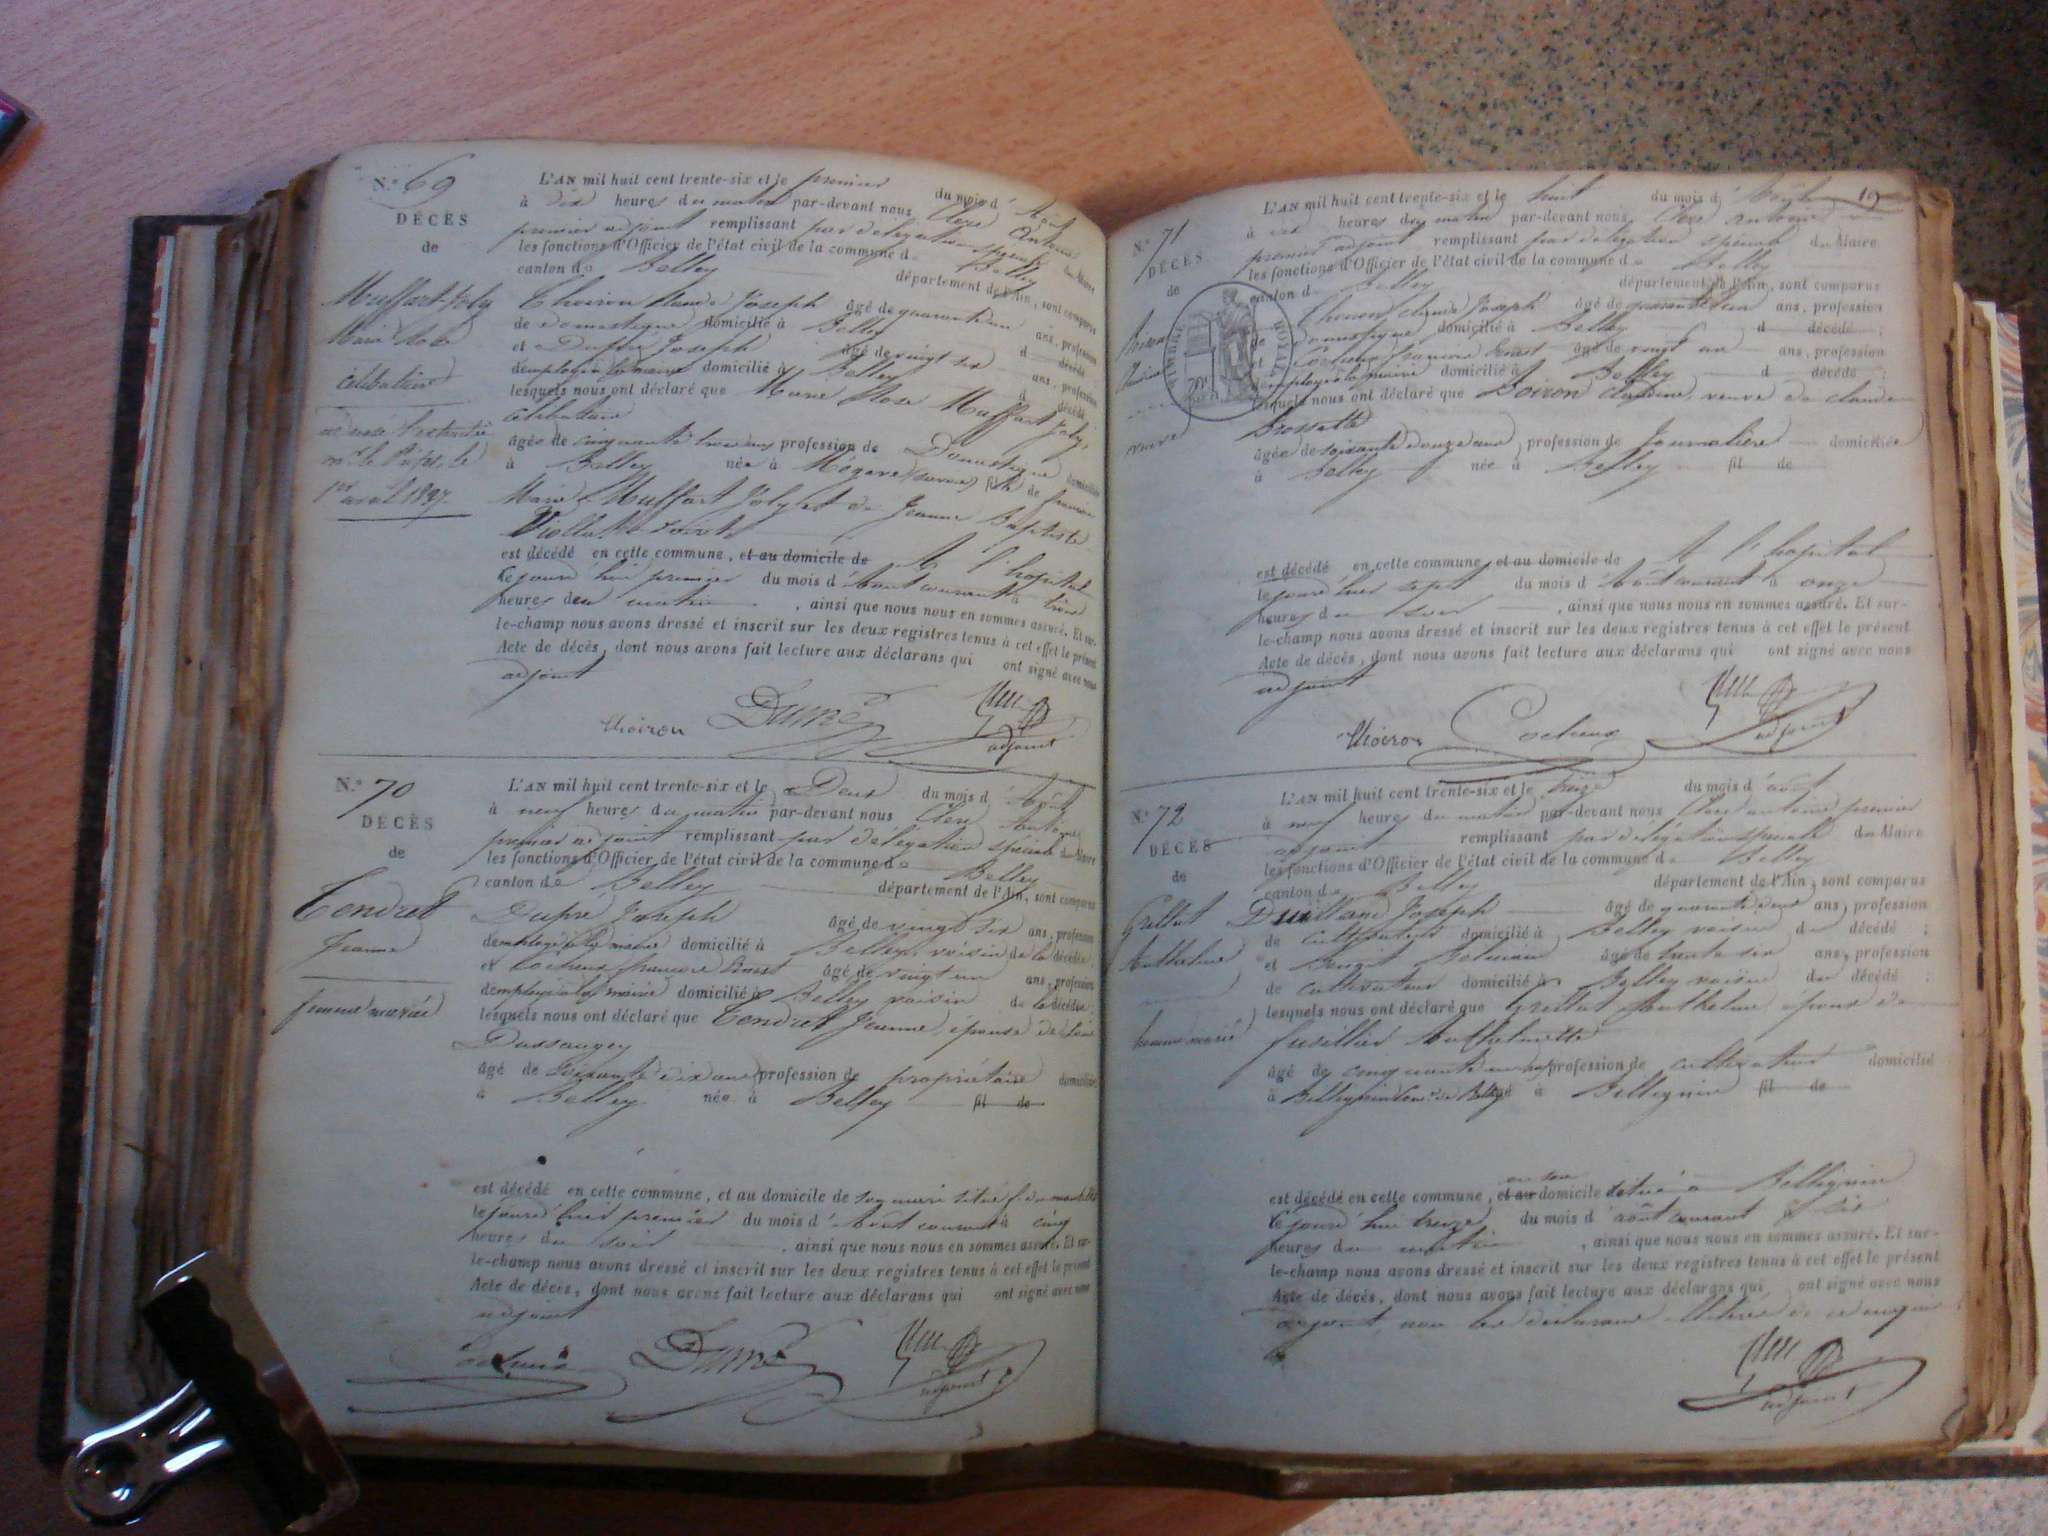 N.° 69
DÉCÈS
de
Muffart-Joly
Marie Rose
célibataire
1er avril 1897
L'AN mil huit cent trente-six et le premier du mois d'Août
à dix heures du matin par-devant nous Clerc Antoine
premier adjoint remplissant par délégation spéciale du Maire
les fonctions d'Officier de l'état civil de la commune de Belley
canton de Belley département de l'Ain, sont comparus
Thoiron Claude Joseph âgé de quarante un ans, profession
de domestique domicilié à Belley d décédé ;
et Dupré Joseph âgé de vingt six ans, profession
d'employé à la mairie domicilié à Belley d décédé
lesquels nous ont déclaré que Marie Rose Muffart Joly,
célibataire
âgée de cinquante trois ans profession de Domestique domiciliée
à Belley née à Mégève (Savoie) fille de françois
Marie Muffart Joly et de Jeanne Baptiste
est décédé en cette commune, et au domicile de A l'hôpital
le jourd'hui premier du mois d'Août courant à trois
heures du matin , ainsi que nous nous en sommes assuré. Et sur-
le-champ nous avons dressé et inscrit sur les deux registres tenus à cet effet le présent
Acte de décès, dont nous avons fait lecture aux déclarans qui ont signé avec nous
adjoint
Thoiron Dupré Clerc
adjoint
N.° 70
DÉCÈS
de
Tendret
Jeanne
femme mariée
L'AN mil huit cent trente-six et le Deux du mois d'Août
à neuf heures du matin par-devant nous Clerc Antoine
premier adjoint remplissant par délégation spéciale du Maire
les fonctions d'Officier de l'état civil de la commune de Belley
canton de Belley département de l'Ain, sont comparus
Dupré Joseph âgé de vingt six ans, profession
d'employé à la mairie domicilié à Belley, voisin de la décédée ;
et Cocheux françois Ernest âgé de vingt un ans, profession
d'employé à la mairie domicilié à Belley voisin de la décédée ;
lesquels nous ont déclaré que Tendret Jeanne, épouse de
Dussaugey
âgé de soixante dix ans profession de propriétaire domiciliée
à Belley née à Belley fil de
est décédé en cette commune, et au domicile de son mari situé
le jourd'hier premier du mois d'Août courant à cinq
heures du soir , ainsi que nous nous en sommes assuré. Et sur-
le-champ nous avons dressé et inscrit sur les deux registres tenus à cet effet le présent
Acte de décès, dont nous avons fait lecture aux déclarans qui ont signé avec nous
adjoint
Cocheux Dupré Clerc
adjoint
19
N.° 71
DÉCÈS
de
veuve
TIMBRE ROYAL
L'AN mil huit cent trente-six et le huit du mois d'Août
à dix heures du matin par-devant nous Clerc Antoine
premier adjoint remplissant par délégation spéciale du Maire
les fonctions d'Officier de l'état civil de la commune de Belley
canton de Belley département de l'Ain, sont comparus
Thoiron Claude Joseph âgé de quarante un ans, profession
de domestique domicilié à Belley d décédé ;
et Cocheux françois Ernest âgé de vingt un ans, profession
d'employé à la mairie domicilié à Belley d décédé ;
lesquels nous ont déclaré que Poiron Claudine, veuve de Claude
Brossette
âgée de soixante douze ans, profession de Journalière domiciliée
à Belley née à Belley fil de
est décédé en cette commune, et au domicile de A l'hôpital
le jourd'hier sept du mois d'Août courant à onze
heures du soir , ainsi que nous nous en sommes assuré. Et sur-
le-champ nous avons dressé et inscrit sur les deux registres tenus à cet effet le présent
Acte de décès, dont nous avons fait lecture aux déclarans qui ont signé avec nous
adjoint
Thoiron Cocheux Clerc
adjoint
N.° 72
DÉCÈS
de
Grillot
Anthelme
homme marié
L'AN mil huit cent trente-six et le treize du mois d'août
à neuf heures du matin par-devant nous Clerc antoine premier
adjoint remplissant par délégation spéciale du Maire
les fonctions d'Officier de l'état civil de la commune de Belley
canton de Belley département de l'Ain, sont comparus
Joseph âgé de quarante deux ans, profession
de cultivateur domicilié à Belley voisin du décédé ;
et Benoit âgé de trente six ans, profession
de cultivateur domicilié à Belley voisin du décédé ;
lesquels nous ont déclaré que Grillot Anthelme, époux de
fusillier Anthelmette
âgé de cinquante ans, profession de cultivateur domicilié
à Billignin Com. de Belley né à Billignin fil de
est décédé en cette commune, et au en son domicile situé à Billignin
le jourd'hui treize du mois d'août courant à six
heures du matin , ainsi que nous nous en sommes assuré. Et sur-
le-champ nous avons dressé et inscrit sur les deux registres tenus à cet effet le présent
Acte de décès, dont nous avons fait lecture aux déclarans qui ont signé avec nous
adjoint, non les déclarans illitérés de ce enquis
Clerc
adjoint